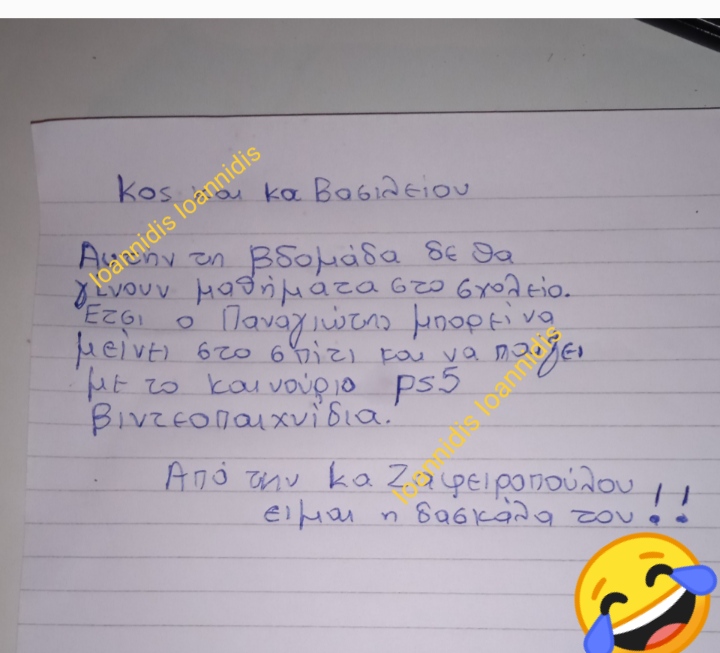 Κος και κα Βασιλείου
Αυτην τη βδομάδα δε θα
γίνουν μαθήματα στο σχολείο.
Ετσι ο Παναγιώτης μπορεί να
μείνει στο σπίτι και να παίξει
με το καινούριο ps5
βιντεοπαιχνίδια.
Από την κα Ζαφειροπούλου
ειμαι η δασκάλα του!!
Ioannidis Ioannidis
Ioannidis Ioannidis